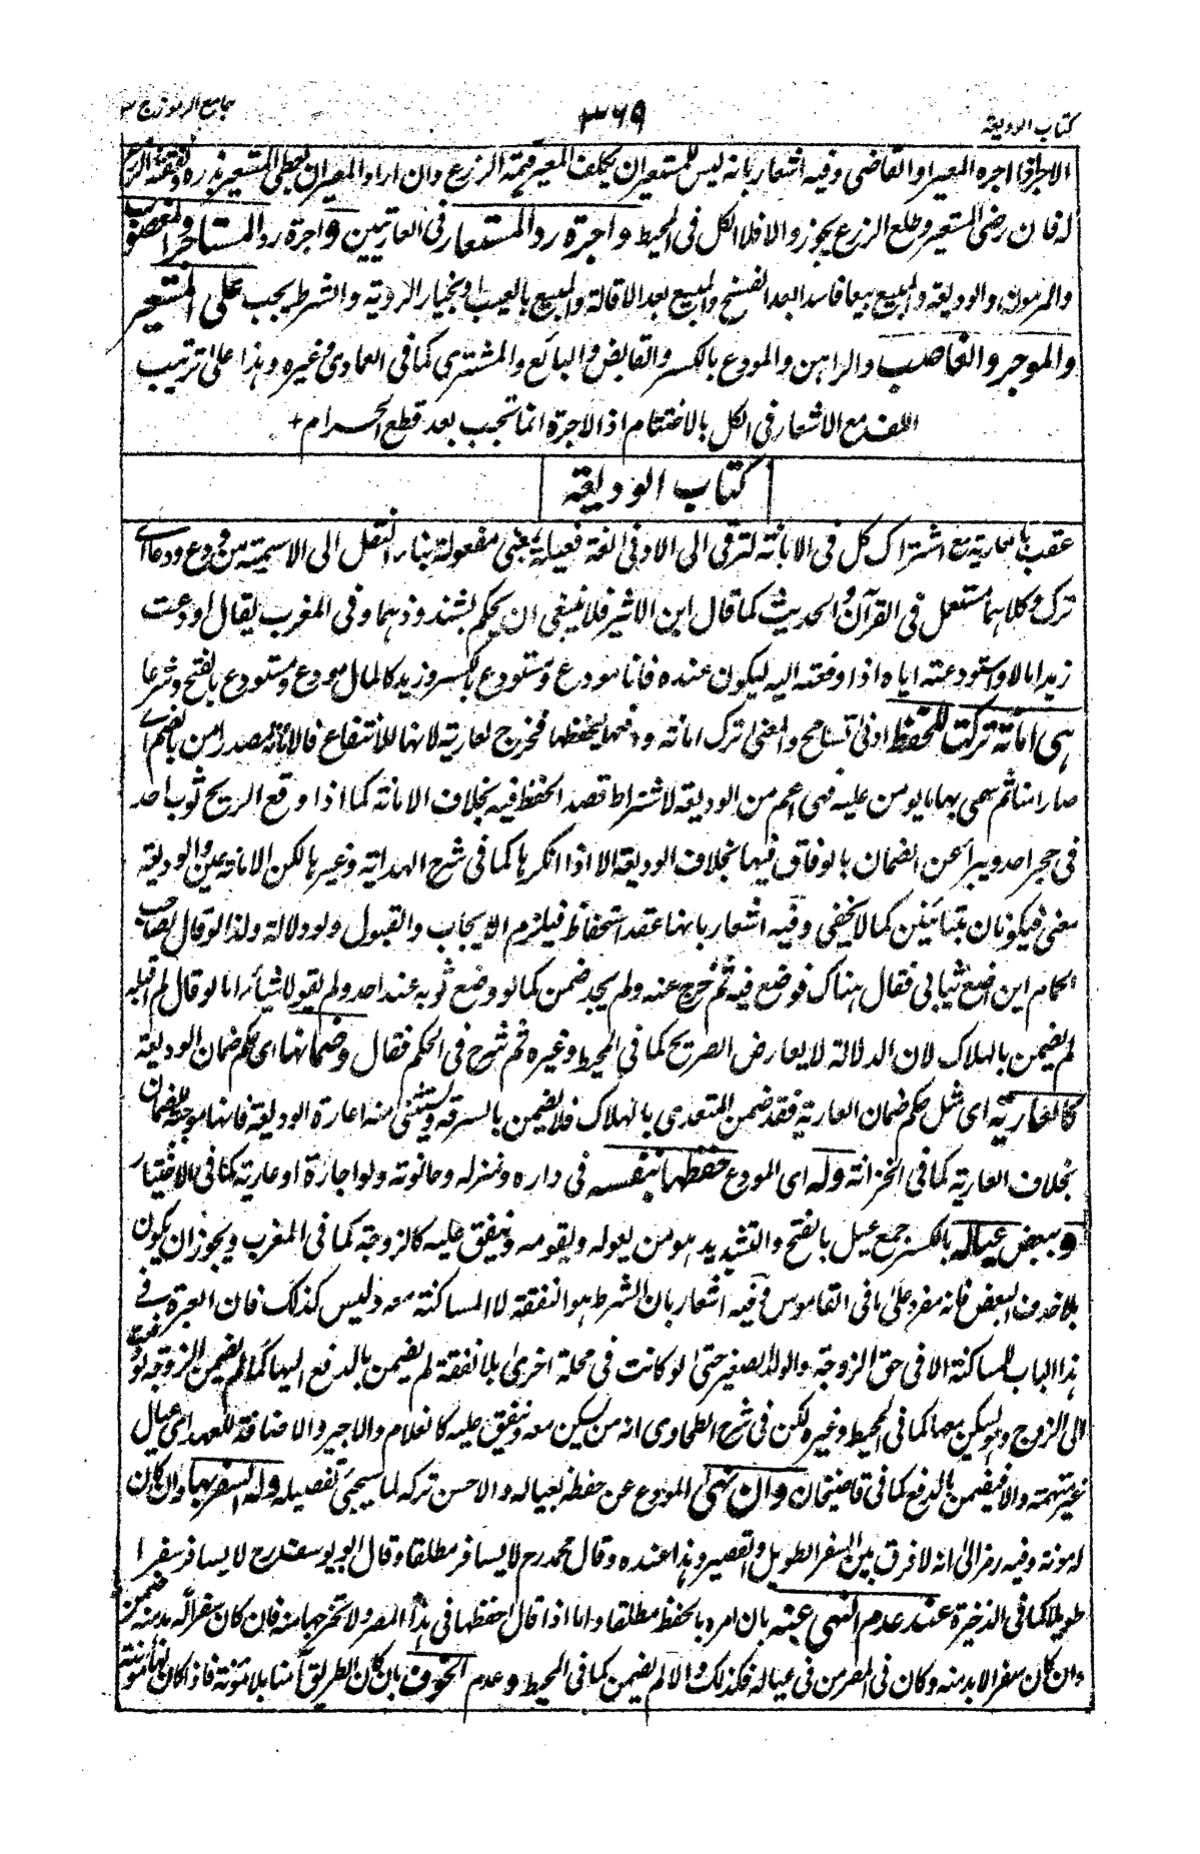 كتاب الوديعة
٣٦٩
جامع الرموز ج ٣
الا جر اذا اجره المعير او القاضى وفيه اشعار بانه ليس للمستعير ان يكلف المعير قيمة الزرع وان اراد المعير ان يعطى المستعير بذره ونفقته الزرع
له فان رضى المستعير وطلع الزرع يجوز والا فلا الكل فى المحيط واجرة رد المستعار فى العاريتين واجرة رد المستاجر والمغصوب
والمرهون والوديعة والمبيع بيعا فاسدا بعد الفسخ والمبيع بعد الاقالة والمبيع بالعيب او بخيار الروية والشرط يجب على المستعير
والموجر والغاصب والراهن والمودع بالكسر والقابض والبائع والمشترى كما فى العمادى وغيره وهذا على ترتيب
اللف مع الاشعار فى الكل بالاختتام اذ الاجرة انما تجب بعد قطع الحرام +
كتاب الوديعة
عقب بالعارية مع اشتراك كل فى الامانة لترقى الى الا وفى اللغة فعيلة بمعنى مفعولة بتاء النقل الى الاسمية من ودع ودعا اى
ترك وكلاهما مستعمل فى القرآن والحديث كما قال ابن الاثير فلا ينبغى ان يحكم بشذوذهما وفى المغرب يقال اودعت
زيدا مالا واستودعته اياه اذا دفعته اليه ليكون عنده فانا مودع ومستودع بالكسر وزيد كالمال مودع ومستودع بالفتح وشرعا
هى امانة تركت للحفظ ادنى تسامح والمعنى ترك امانة ودفعها لحفظها فخرج العارية لانها للانتفاع فالامانة مصدر امن بالضم اى
صار امينا ثم سمى بها ما يومن عليه فهى اعم من الوديعة لاشتراط قصد الحفظ فيه بخلاف الامانة كما اذا وقع الريح ثوب احد
فى حجر احد ويبرأ عن الضمان بالوفاق فيها بخلاف الوديعة الا اذا انكرها كما فى شرح الهداية وغيرها لكن الامانة عين والوديعة
معنى فيكونان متباينين كما لا يخفى وفيه اشعار بانها عقد استحفاظ فيلزم الايجاب والقبول ولو دلالة ولذا لو قال لصاحب
الحمام اين اضع ثيابى فقال هناك فوضع فيه ثم خرج عنه ولم يجد ضمن كما لو وضع ثوبه عند احد ولم يقولا شيأ اما لو قال لم اقبله
لم يضمن بالهلاك لان الدلالة لا يعارض الصريح كما فى المحيط وغيره ثم شرع فى الحكم فقال وضمانها اى حكم ضمان الوديعة
كالعارية اى مثل حكم ضمان العارية فقد ضمن المتعدى بالهلاك فلا يضمن بالسرقة ويستثنى منه اعارة الوديعة فانها موجبة للضمان
بخلاف العارية كما فى الخزانة وله اى المودع حفظها بنفسه فى داره ومنزله وحانوته ولو اجارة او عارية كما فى الاختيار
وببعض عياله بالكسر جمع عيل بالفتح والتشديد هو من يعوله ويقومه وينفق عليه كالزوجة كما فى المغرب ويجوز ان يكون
بلا حذف البعض فانه مفرد على ما فى القاموس وفيه اشعار بان الشرط هو النفقة لا المساكنة معه وليس كذلك فان العبرة فى
هذا الباب للمساكنة الا فى حق الزوجة والولد الصغير حتى لو كانت فى محلة اخرى بلا نفقة لم يضمن بالدفع اليها كما لم يضمن الزوجة لو دفعت
الى الزوج ولو يسكن معها كما فى المحيط وغيره لكن فى شرح الطحاوى انه من يسكن معه وينفق عليه كالغلام والاجير والاضافة للعهد اى عيال
غير متهمة والا فيضمن بالدفع كما فى قاضيخان وان نهى المودع عن حفظه بعياله والاحسن تركه لما سيجئ تفصيله وله السفر بها وان كان
له مونة وفيه رمز الى انه لا فرق بين السفر الطويل والقصير وهذا عنده وقال محمد رح لا يسافر مطلقا وقال ابو يوسف رح لا يسافر سفرا
طويلا كما فى الذخيرة عند عدم النهى عنه بان امره بالحفظ مطلقا واما اذا قال احفظها فى هذا المصر ولا تخرجها منه فان كان سفرا له بد منه ضمن
وان كان سفرا لا بد منه وكان فى المصر من فى عياله فكذلك والا لم يضمن كما فى المحيط وعدم الخوف بان كان الطريق آمنا بلا مئونة فاذا كان لها مئونة